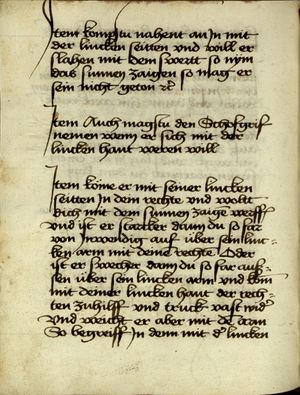 Item kompstu nahent an In mit
der lincken seitten vnd will er
slahen mit dem swertt so nym
das sunnen zaigen so mag er
sein nicht geton
Item Auch magstu den
nemen wem er sich mit der
lincken hant weren will
Item kome er mit seiner lincken
seitten In dem rechte vnd wollt
dich mit dem sunnen zaige werff
vnd ist er starcker dann du so far
von Inwendig auf über sein linc
ken arm mit deine rechte Oder
ist er swecher dann du so far auss
sen über sein lincken arm vnd kom
mit deiner lincken hant der rech
ten zuhilff vnd truck vast nid
vnd weicht er aber mit de arm
So begreiff In denn mit d lincken